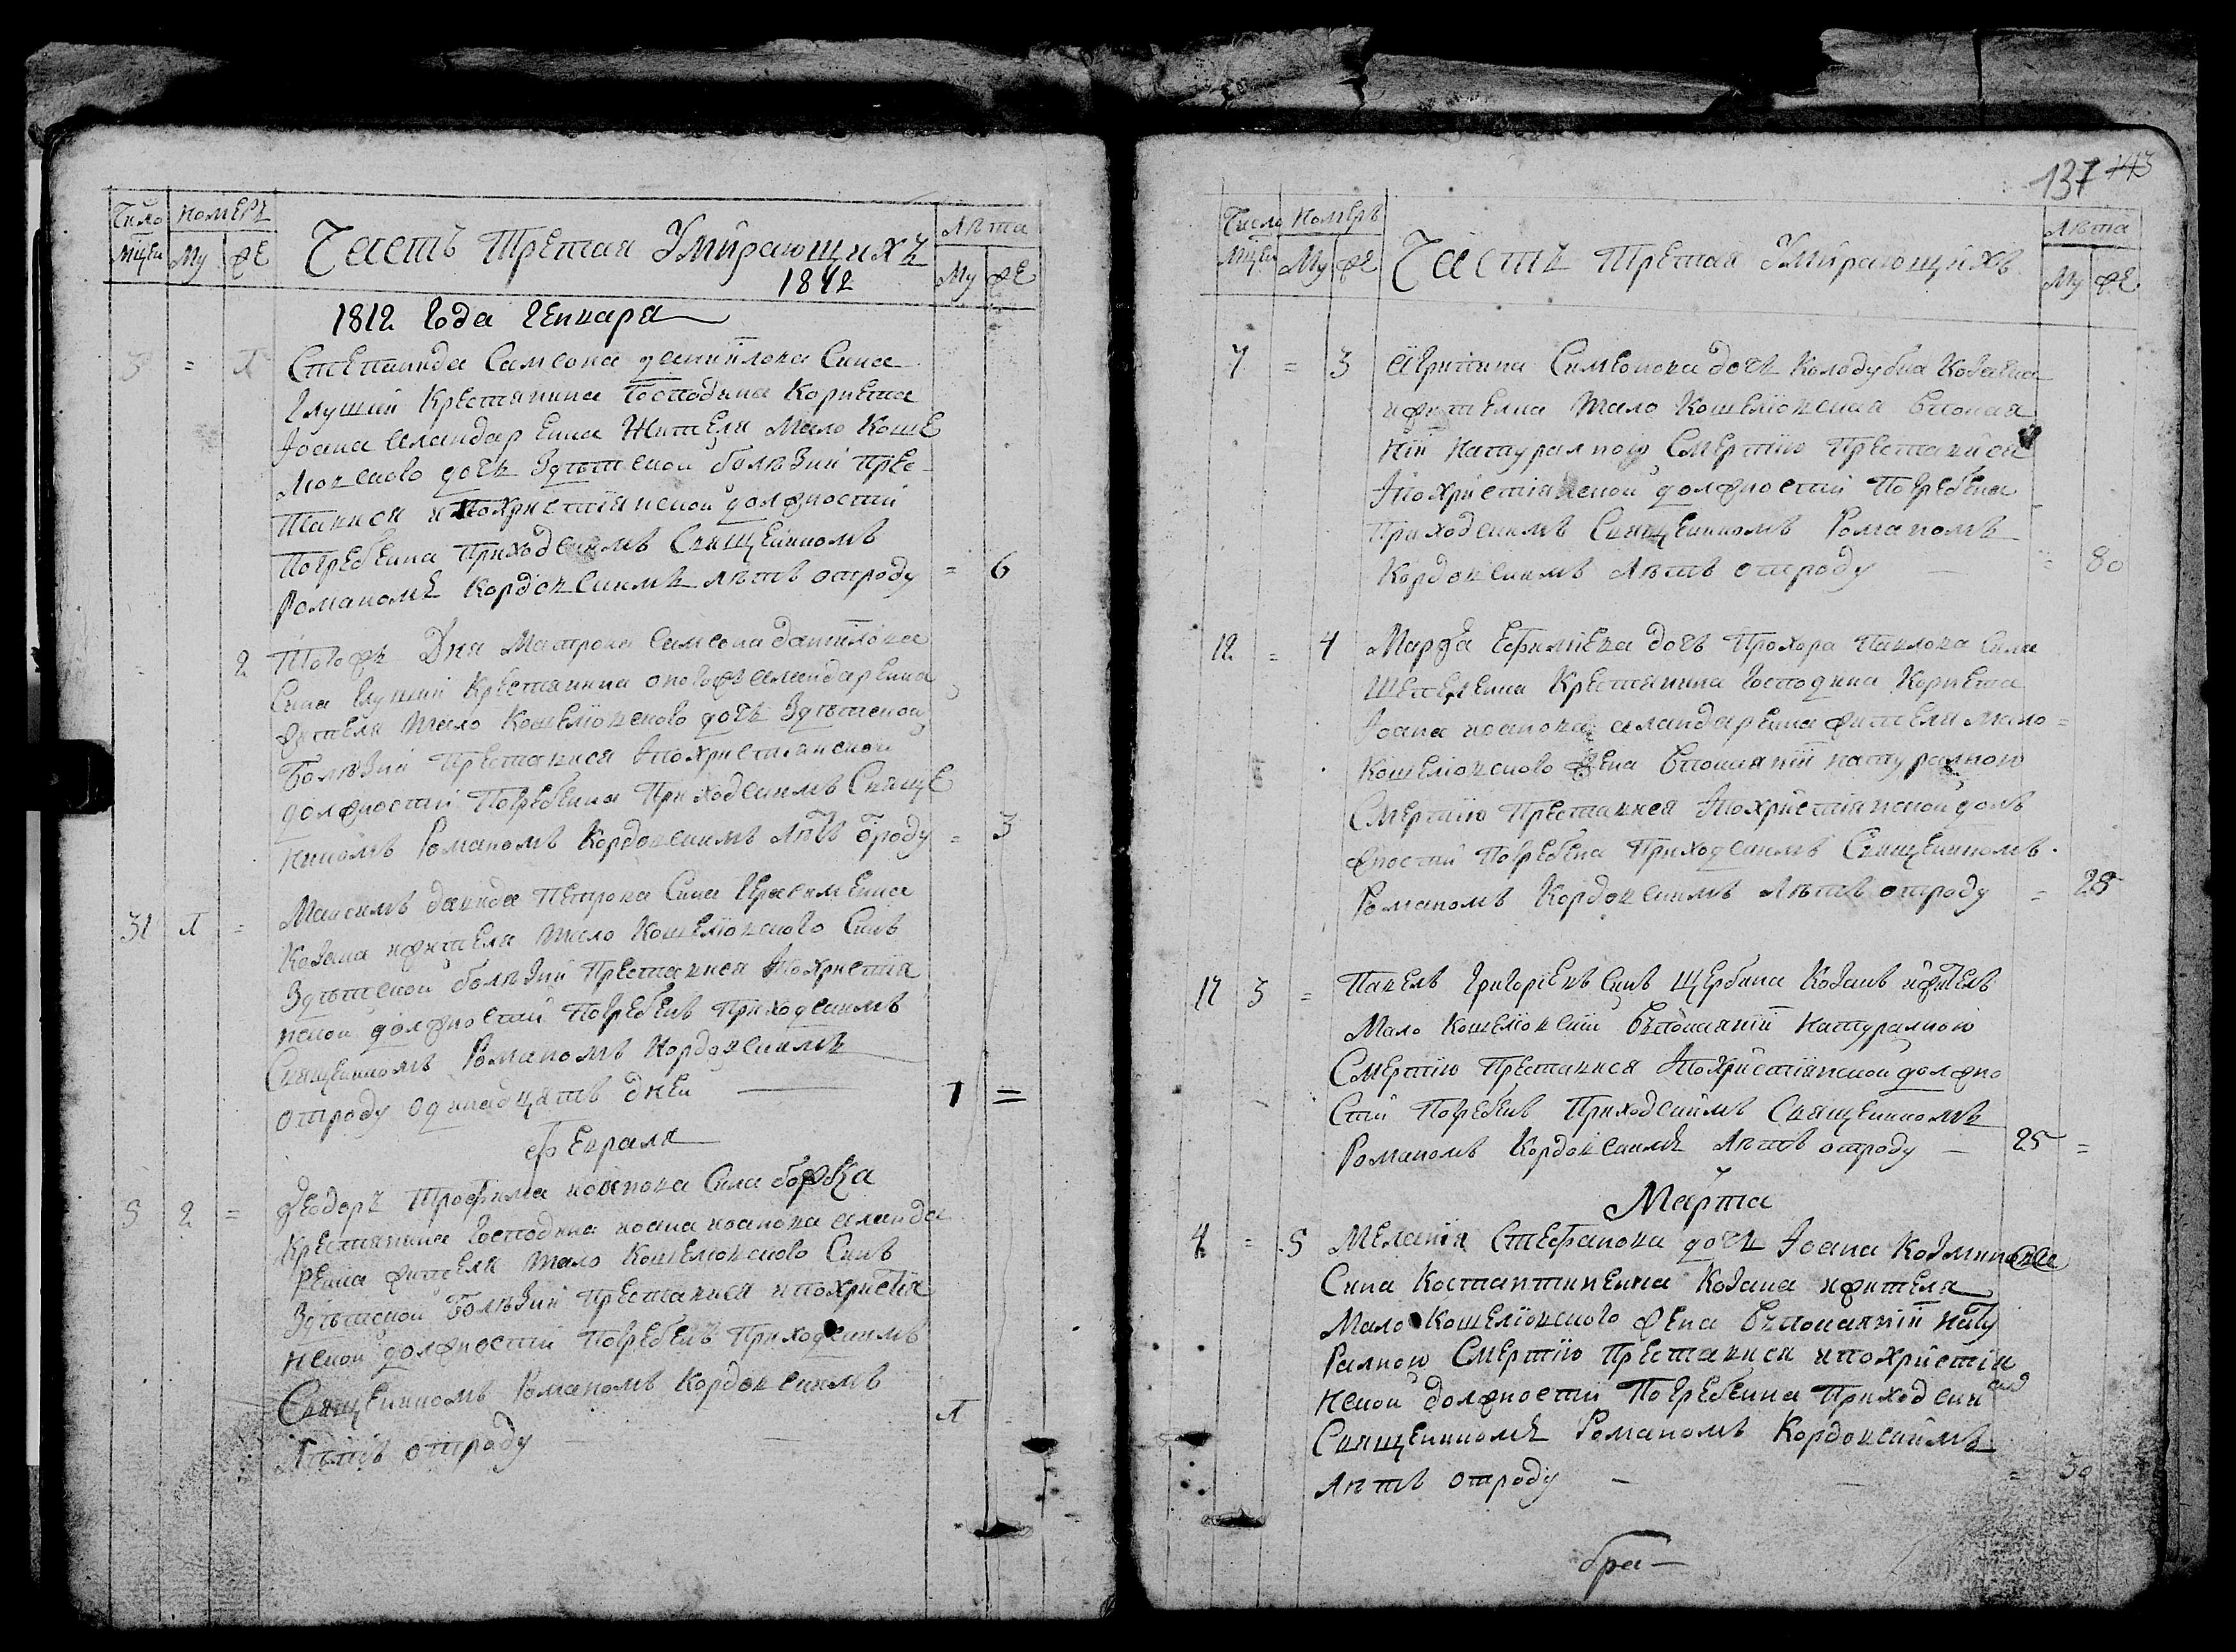 Число Номеръ
Мцси Му Фе
Часть Третая Умирающихъ
1812
Лѣта
Му Фе
1812 Года Генвара
3 = 1 Степанида Самсона данилова Сина
Глуший Крестянина Господина Корнета
Іоана Селандаренка Жителя Мало Коше
лювского дочь Здѣтской болѣзнй прес
тавися и похристіянской должностй
погребенна приходскимъ Священнномъ
Романомъ Кордовскимъ лѣтъ отроду = 6
2 Тогожъ Дня Матрона Самсона данилова
Сина Крестянина
жителя Мало Кошелювского дочь Здѣтской
Болѣзнй Преставися Iпохристіянской
должностй Погребенна Приходскимъ Свяще
нникомъ Романомъ Кордовскимъ лѣтъ ѿроду = 3
31 1 = Максимъ давида Петрова Сина Герасименка
Козака ижителя Мало Кошелювского Синъ
Здѣтской болѣзнй Преставися Iпохристія
нской должностй Погребенъ Приходскимъ
Священномъ Романомъ Кордовскимъ
отроду одинадцать дней 1 =
Февраля
5 2 = Феодоръ Трофима иоанова Сина
Крестянина Господина иоана иоанова Селанда
ренка жителя Мало Кошелювского Синъ
Здѣтской Болѣзнй Преставися ипохристія
нской должностй погребенъ Приходскимъ
Священнномъ Романомъ Кордовскимъ
Лѣтъ отроду 1
137 143
Число Номеръ
Мцси Му Фе
Часть Третая Умирающихъ
Лѣта
Му Фе
7 = 3 Агрипина Симеонова дочь Колодубна Козачка
ижителка Мало Кошелювская впокая
нїи натуралною Смертїю Преставися
Iпохристіянской должностй Погребена
Приходскимъ Священникомъ Романомъ
Кордовскимъ Лѣтъ отроду = 80
12 = 4 Марфа Ефимиева дочь Прохора Павлова Сина
Крестянина Господина Корнета
Іоана иоанова Селандаренка жителя Мало =
Кошелювского жена впокаянїй натуралною
Смертїю Преставися Iпохристіянской дол
жностй Погребена Приходскимъ Священникомъ
Романомъ Кордовскимъ Лѣтъ отроду = 25
17 3 = Павелъ Григорїевъ Синъ Щербина Козакъ ижитель
Мало Кошелювскїй Впокаянїй Натуралною
Смертїю Преставися Iпохристіянской должно
Стй Погребенъ Приходскимъ Священникомъ
Романомъ Кордовскимъ Лѣтъ отроду 25 =
Марта
4 = 5 Меланія Стефанова дочь Іоана Козминова
Сина Костантиненка Козака ижителя
Мало Кошелювского жена Впокаянїй нату
ралною Смертїю Преставися ипохристія
нской должностй Погребенна Приходским
Священникомъ Романомъ Кордовскимъ
Лѣтъ отроду = 30
бра